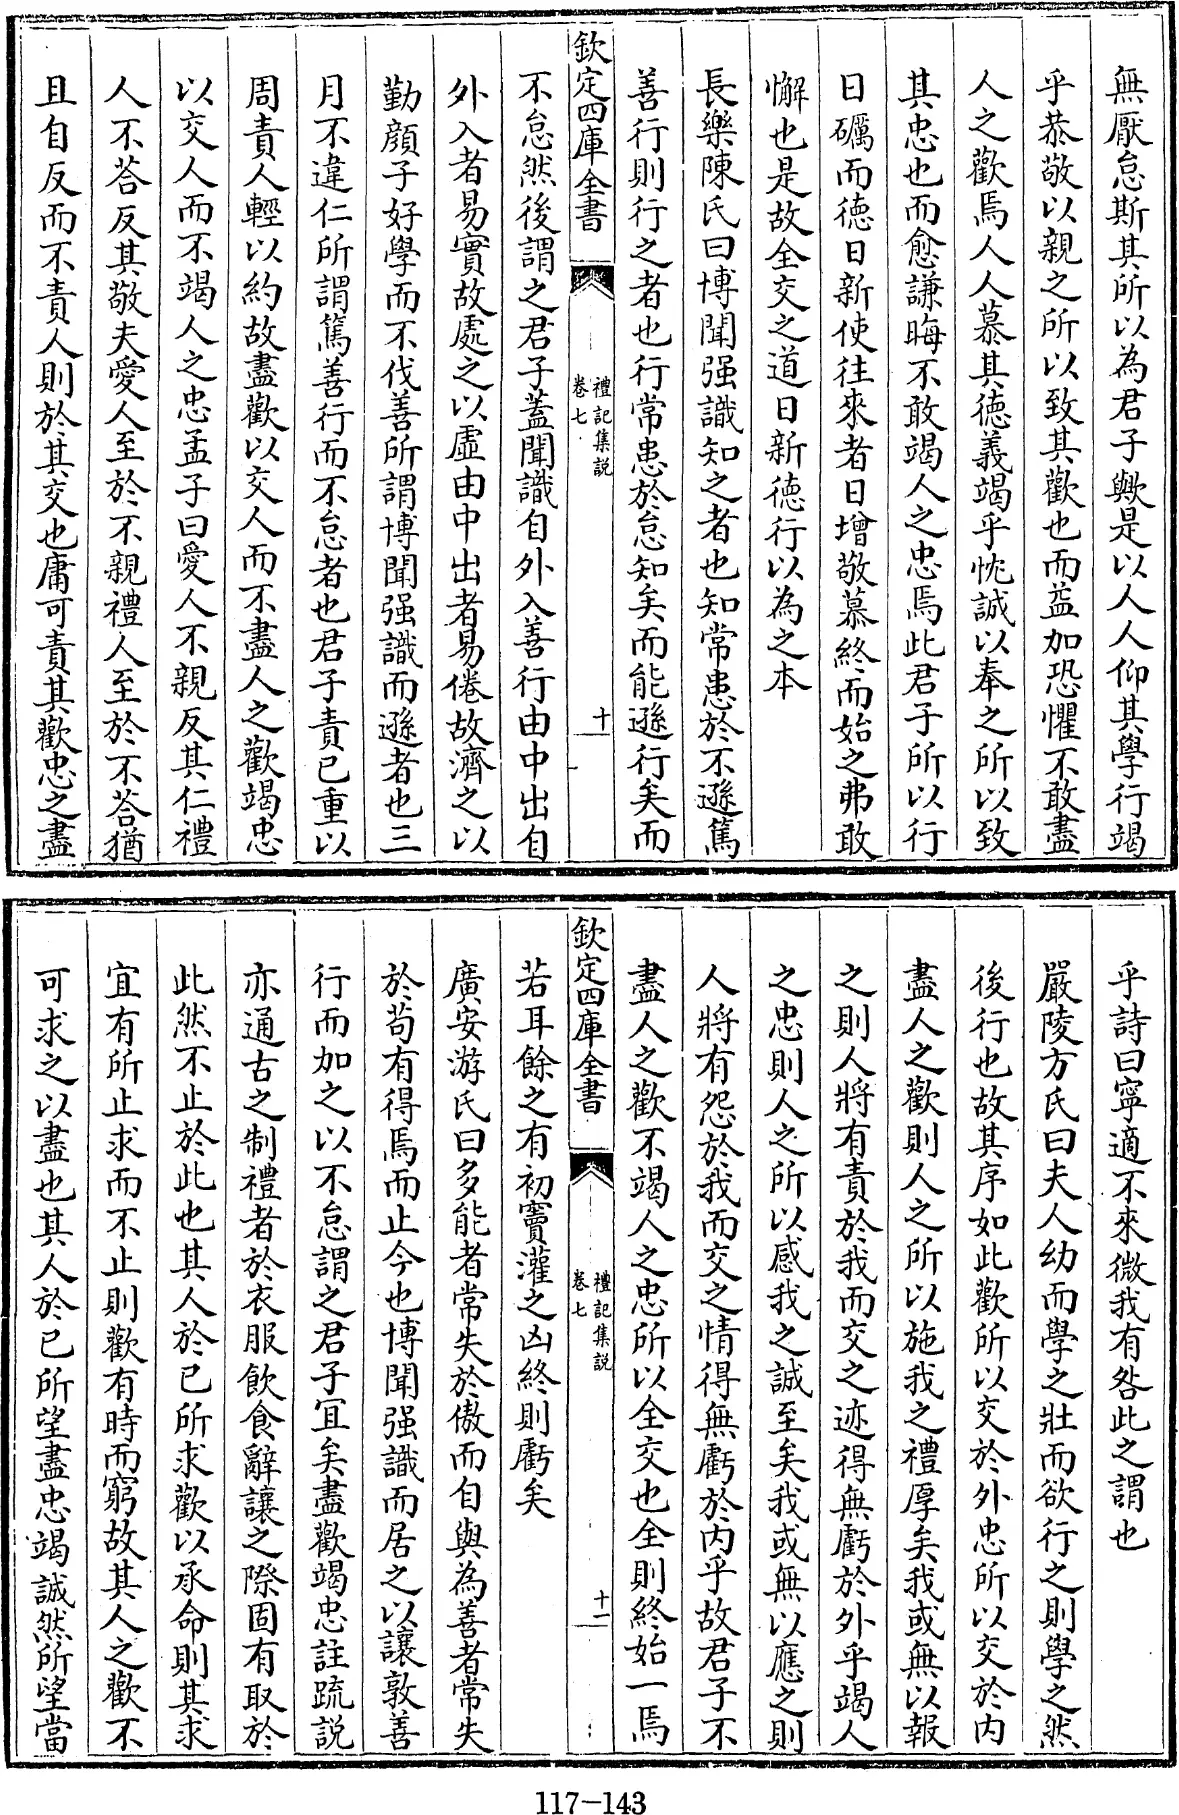 無厭怠斯其所以為君子歟是以人人仰其學行竭
乎恭敬以親之所以致其歡也而益加恐懼不敢盡
人之歡焉人人慕其德義竭乎忱誠以奉之所以致
其忠也而愈謙晦不敢竭人之忠焉此君子所以行
日礪而德日新使往來者日增敬慕終而始之弗敢
懈也是故全交之道日新德行以為之本
長樂陳氏曰博聞强識知之者也知常患於不遜篤
善行則行之者也行常患於怠知矣而能遜行矣而
欽定四庫全書
禮記集説
卷七
十
不怠然後謂之君子蓋聞識自外入善行由中出自
外入者易實故處之以虛由中出者易倦故濟之以
勤顔子好學而不伐善所謂博聞强識而遜者也三
月不違仁所謂篤善行而不怠者也君子責已重以
周責人輕以約故盡歡以交人而不盡人之歡竭忠
以交人而不竭人之忠孟子曰愛人不親反其仁禮
人不答反其敬夫愛人至於不親禮人至於不答猶
且自反而不責人則於其交也庸可責其歡忠之盡
乎詩曰寧適不來微我有咎此之謂也
嚴陵方氏曰夫人幼而學之壯而欲行之則學之然
後行也故其序如此歡所以交於外忠所以交於内
盡人之歡則人之所以施我之禮厚矣我或無以報
之則人將有責於我而交之迹得無虧於外乎竭人
之忠則人之所以感我之誠至矣我或無以應之則
人將有怨於我而交之情得無虧於内乎故君子不
盡人之歡不竭人之忠所以全交也全則終始一焉
欽定四庫全書
禮記集説
卷七
十一
若耳餘之有初竇灌之凶終則虧矣
廣安游氏曰多能者常失於傲而自與為善者常失
於苟有得焉而止今也博聞强識而居之以讓敦善
行而加之以不怠謂之君子宜矣盡歡竭忠註疏説
亦通古之制禮者於衣服飲食辭讓之際固有取於
此然不止於此也其人於已所求歡以承命則其求
宜有所止求而不止則歡有時而窮故其人之歡不
可求之以盡也其人於已所望盡忠竭誠然所望當
117-143